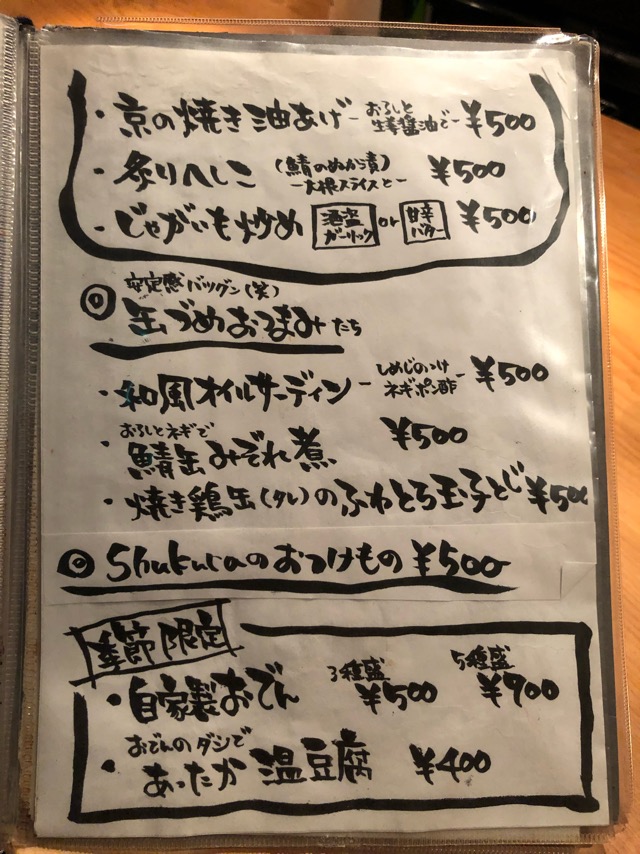 ・京の焼き油あげ－おろしと生姜醤油で－¥500
・炙りへしこ（鯖のぬか漬）－大根スライスと－ ¥500
・じゃがいも炒め 酒盗ガーリック or 甘辛バター ¥500
安定感バツグン（笑）
◎缶づめおつまみたち
・和風オイルサーディン－しめじのっけネギポン酢－¥500
おろしとネギで
・鯖缶みぞれ煮 ¥500
・焼き鶏缶（タレ）のふわとろ玉子とじ ¥500
◎Shukuraのおつけもの ¥500
季節限定
・自家製おでん 3種盛¥500 5種盛¥900
おでんのダシで
・あったか温豆腐 ¥400